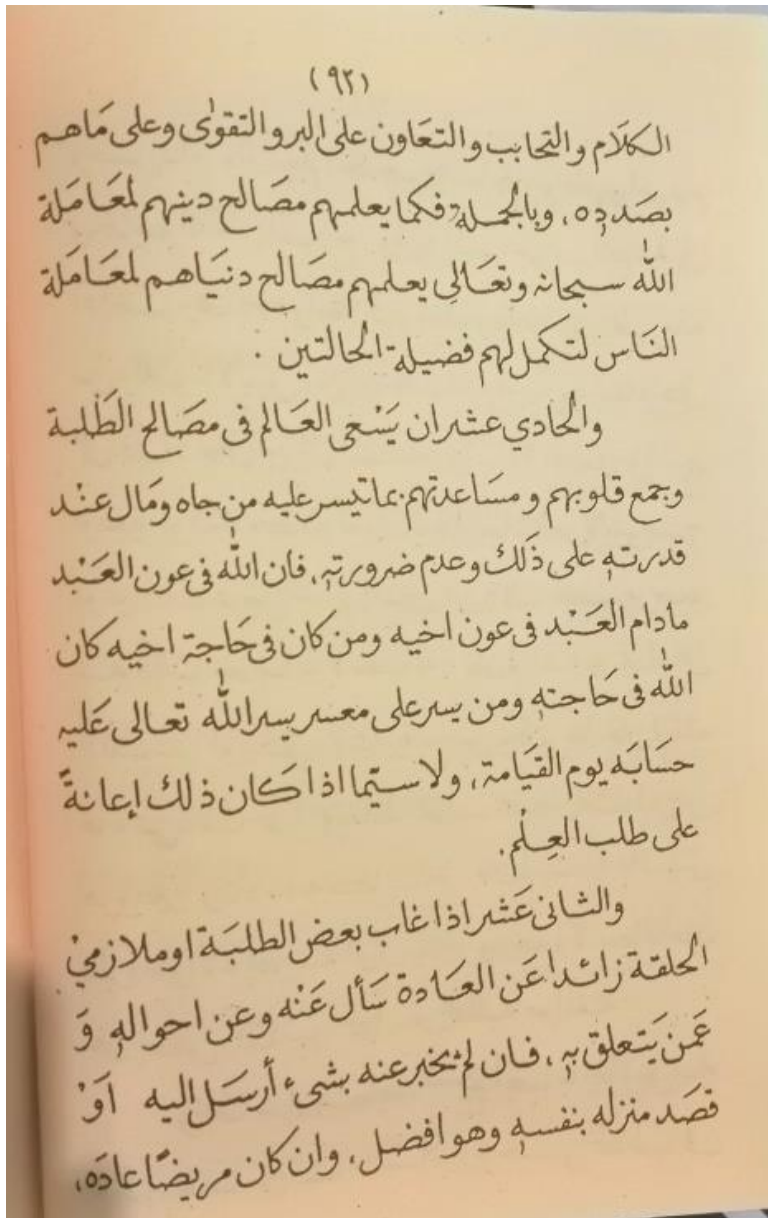 (٩٢)
الكلَام والتحابب والتعَاون على البر والتقوٰى وعلى مَاهم
بصَدده، وبالجملة فكما يعلمهم مصَالح دينهم لمعَامَلة
اللّٰه سبحانه وتعَالى يعلمهم مصَالح دنيَاهم لمعَامَلة
النَاس لتكمل لهم فضيلة الحالتين .
والحادي عشر ان يَسْعى العَالم فى مصَالح الطَلبة
وجمع قلوبهم ومسَاعدتهم بما تيسر عليه من جاه ومَال عنْد
قدرته على ذَلك وعدم ضرورته، فان اللّٰه فى عون العَبْد
مادام العَبْد فى عون اخيه ومن كان فى حَاجة اخيه كان
اللّٰه فى حَاجته ومن يسر على معسر يسر اللّٰه تعالى عَليه
حسَابَه يوم القيَامة، ولا سيّما اذا كَان ذلك إعانةً
على طلب العِلْم.
والثانى عَشر اذا غاب بعض الطلبَة او ملازميْ
الحلقة زائدا عَن العَادة سَأل عَنْه وعن احواله وَ
عَمن يَتعلق به، فان لمْ يخبر عنه بشىء أرسَل اليه اوْ
قصَد منزله بنفسه وهو افضل، وان كان مريضًا عادَه،